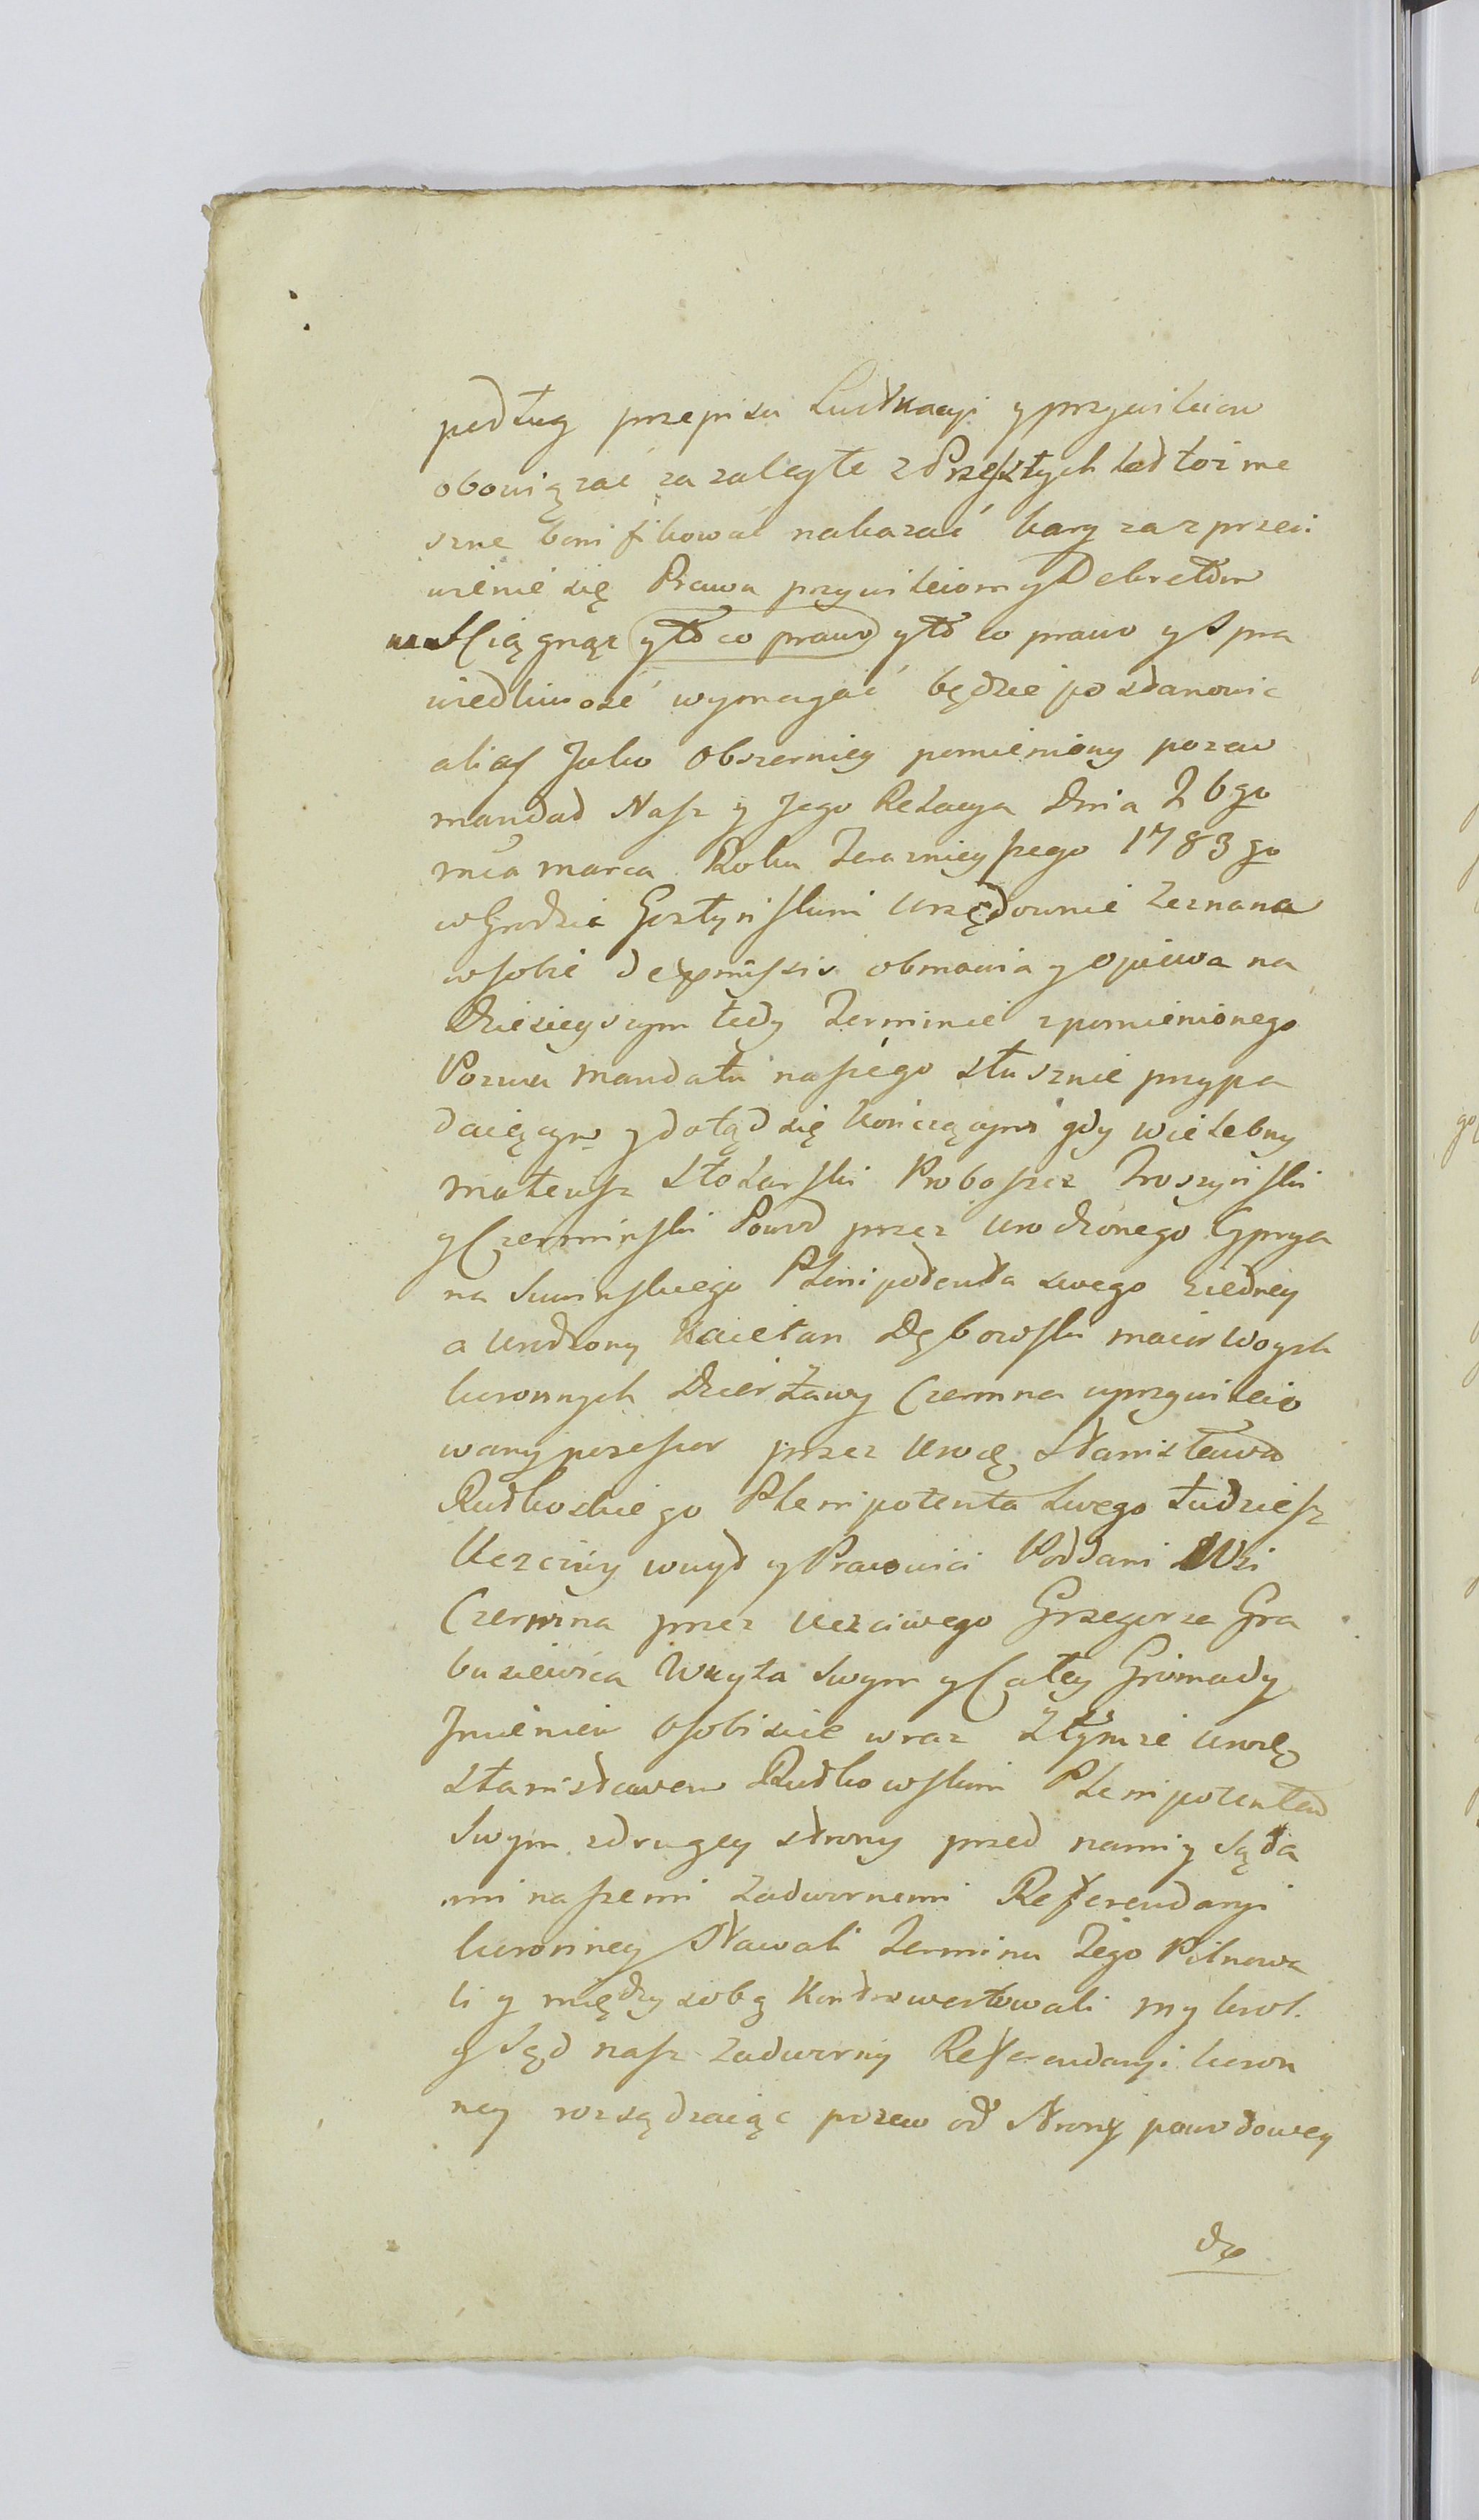 podług przepisu Lustracyi y przywileiow
obowiązać za zaległe z Przeszłych lad toż me
szne bonifikować nakazać kary za sprzeci
wienie się Prawu przywileiom y Dekretom
Sciągnąc y to co prawo y to co prawo y Spra
wiedliwosć wymagać będzie postanowic
alias Jako Obszerniey pomieniony pozew
mandad Nasz y Jego Relacya Dnia 26go
mca marca Roku Terazniejszego 1783go
w Grodzie Gostynskim Urzędownie zeznana
w sobie de praemissis obmawia y opiewa na
Dzisieyszym tedy Terminie z pomienionego
Pozwu mandatu naszego słusznie przypa
daiącym y dotąd się konczącym gdy wielebny
mateusz Stolarski Proboszcz Troszynski
y Czerminski Powod przez Urodzonego Cyprya
na Suminskiego Plenipodenta swego ziedney
a Urodzony Kaietan Dębowski maior Woysk
koronnych Dzierżawy Czermna uprzywileio
wany posessor przez Urodzę Stanisława
Rudkoskiego Plenipotenta Swego tudziesz
Uczciwy woyd y Pracowici Poddani Wsi
Czermna przez Uczciwego Grzegorza Gra
busiewica Woyta Swym y Całey Gromady
Jmieniem Osobiscie wraz Ztymże Urodzę
Stanisławem Rudkowskim Plenipotentem
Swym zdrugiey strony przed nami y Sąda
mi naszemi Zadwornemi Referendaryi
koronney Stawali Terminu Tego Pilnowa
li y między sobą Kontrowertowali my krol.
y Sąd nasz Zadworny Referendaryi koron
ney rozsądzaiąc pozew od Strony powodowey